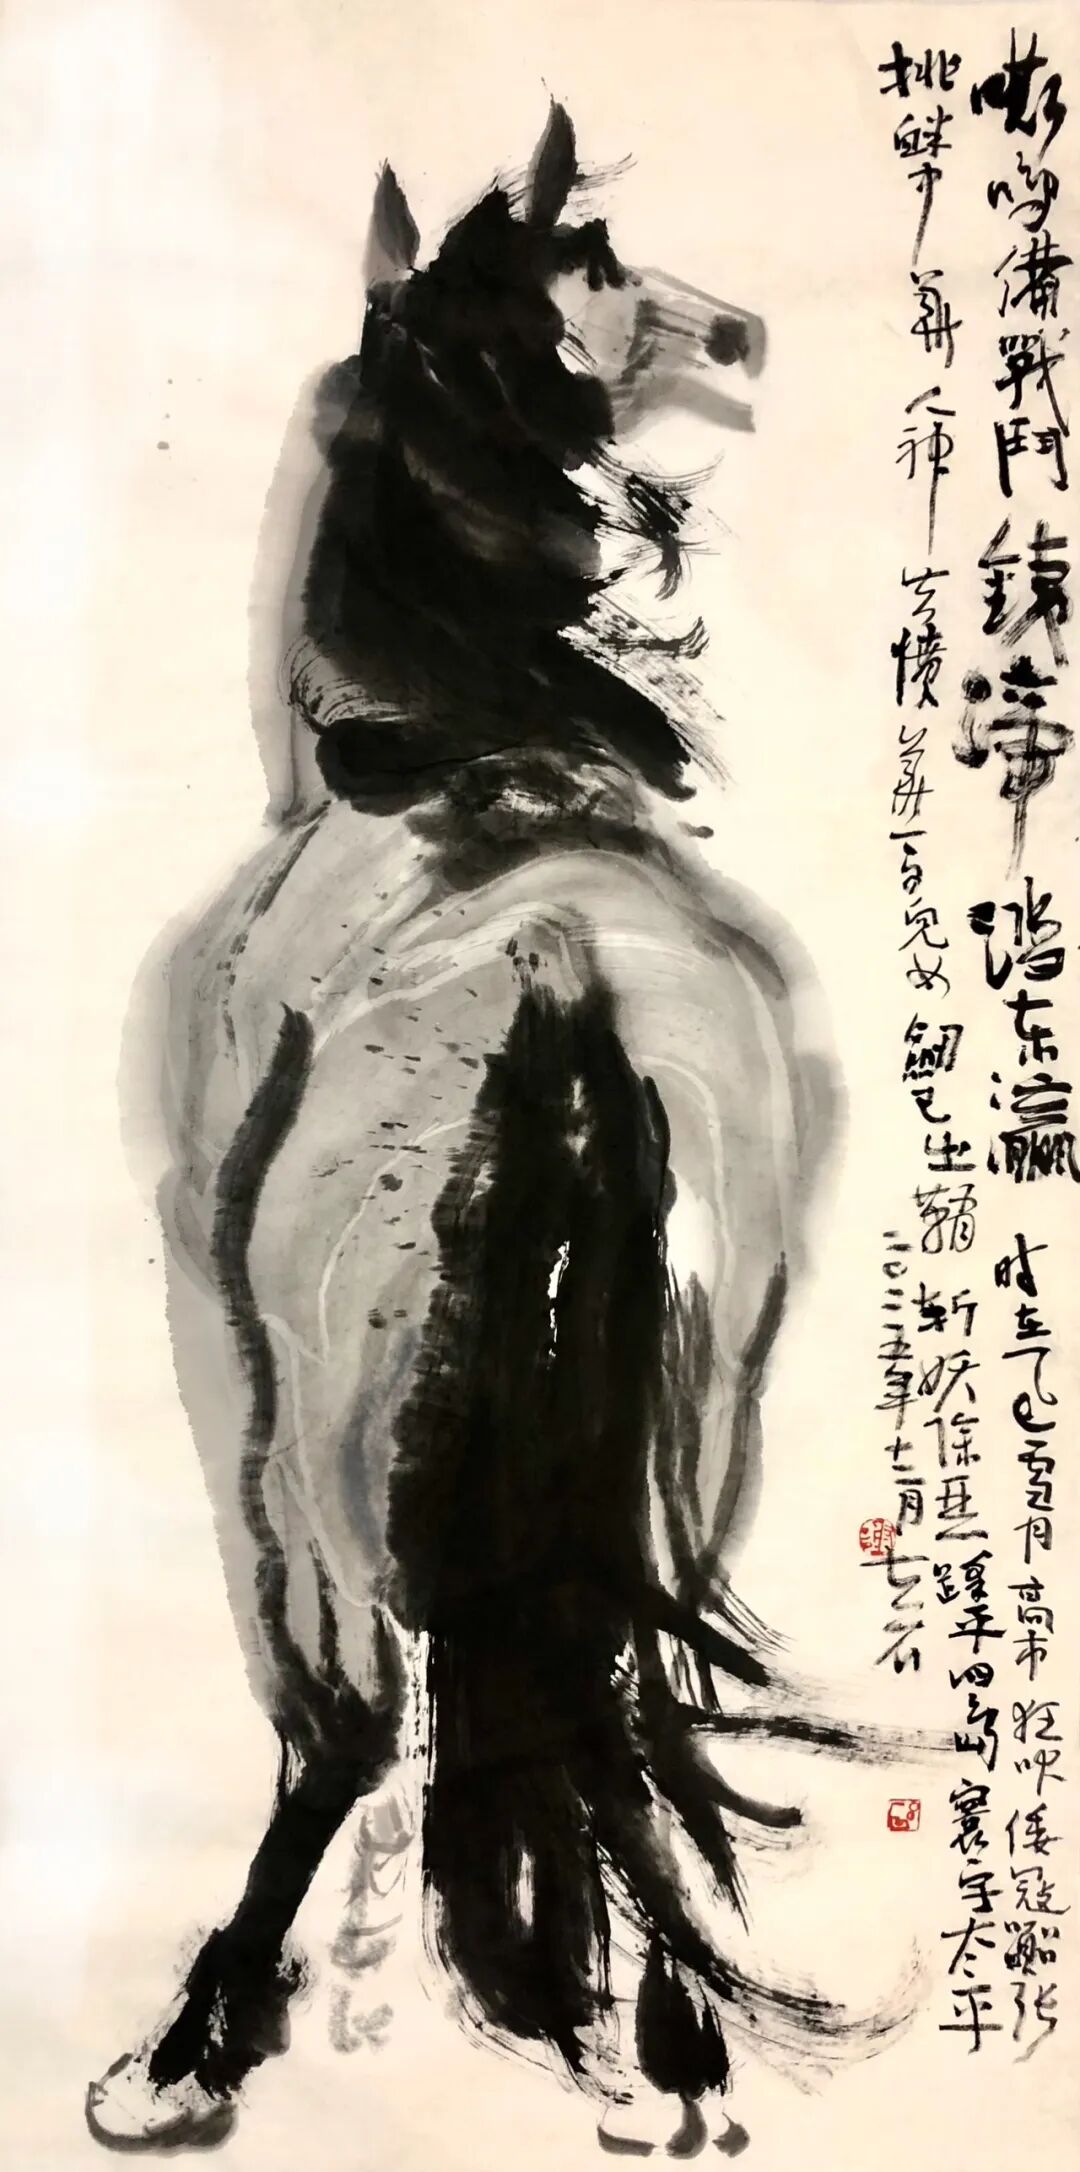 嘶鸣備戰鬥 鐵蹄踏东瀛 时在乙巳雪月高市狂吠倭寇嚣张
挑衅中華人神共憤華夏兒女劍已出鞘斩妖除恶踏平四島寰宇太平
二〇二五年十二月